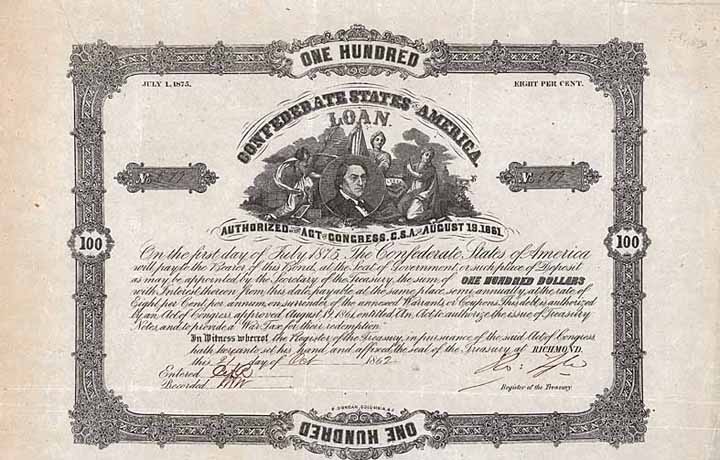 ONE HUNDRED
JULY 1, 1875.
EIGHT PER CENT.
CONFEDERATE STATES OF AMERICA.
LOAN.
No 679
No 679
AUTHORIZED BY ACT OF CONGRESS, C.S.A. OF AUGUST 19. 1861.
100
100
On the first day of July 1875, The Confederate States of America
will pay to the Bearer of this Bond, at the Seat of Government, or such place of Deposit
as may be appointed by the Secretary of the Treasury, the sum of ONE HUNDRED DOLLARS
with Interest hereon from this date, payable at the same place semi annually, at the rate of
Eight per Cent. per annum, on surrender of the annexed Warrants or Coupons. This debt is authorized
by an Act of Congress, approved August 19, 1861, entitled An Act to authorize the issue of Treasury
Notes, and to provide a War Tax for their redemption.
In Witness whereof, the Register of the Treasury, in pursuance of the said Act of Congress
hath hereunto set his hand, and affixed the seal of the Treasury at RICHMOND.
this day of Oct 1862
Entered
Recorded
Ro: Tyler
Register of the Treasury.
E. DUNCAN, COLUMBIA, S.C.
ONE HUNDRED